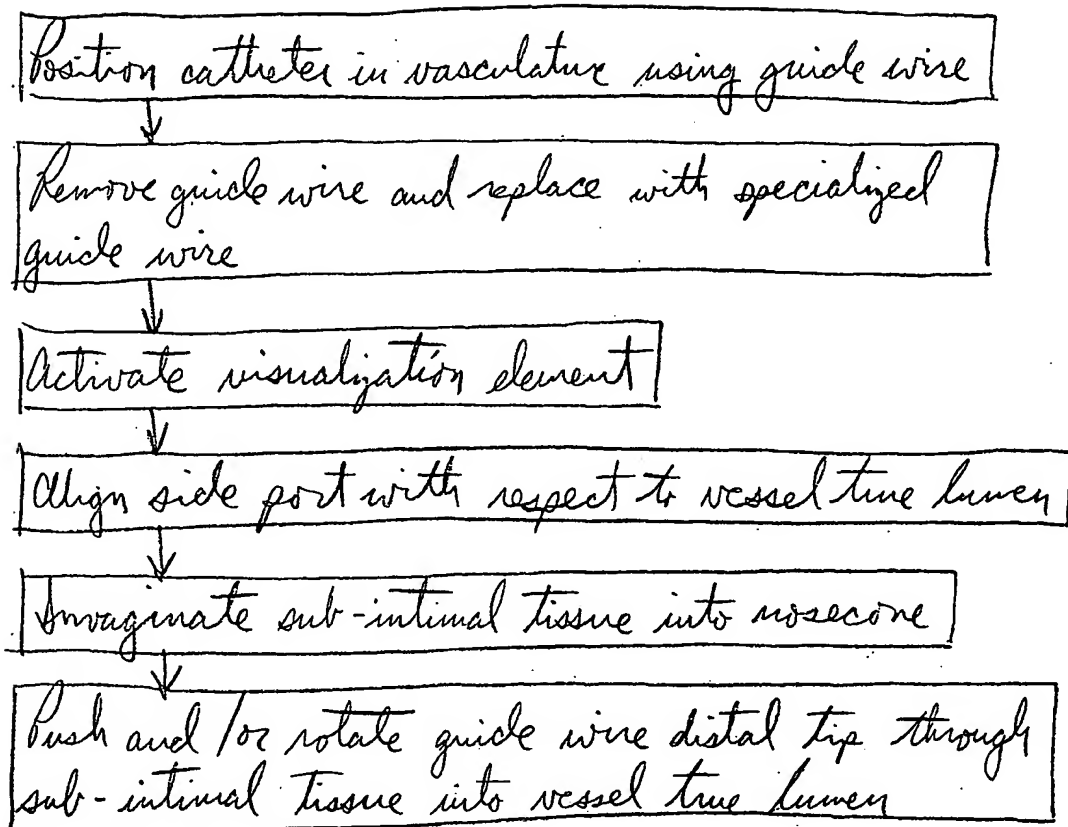 Position catheter in vasculature using guide wire
Remove guide wire and replace with specialized
guide wire
Activate visualization element
Align side port with respect to vessel true lumen
Invaginate sub-intimal tissue into nosecone
Push and/or rotate guide wire distal tip through
sub-intimal tissue into vessel true lumen